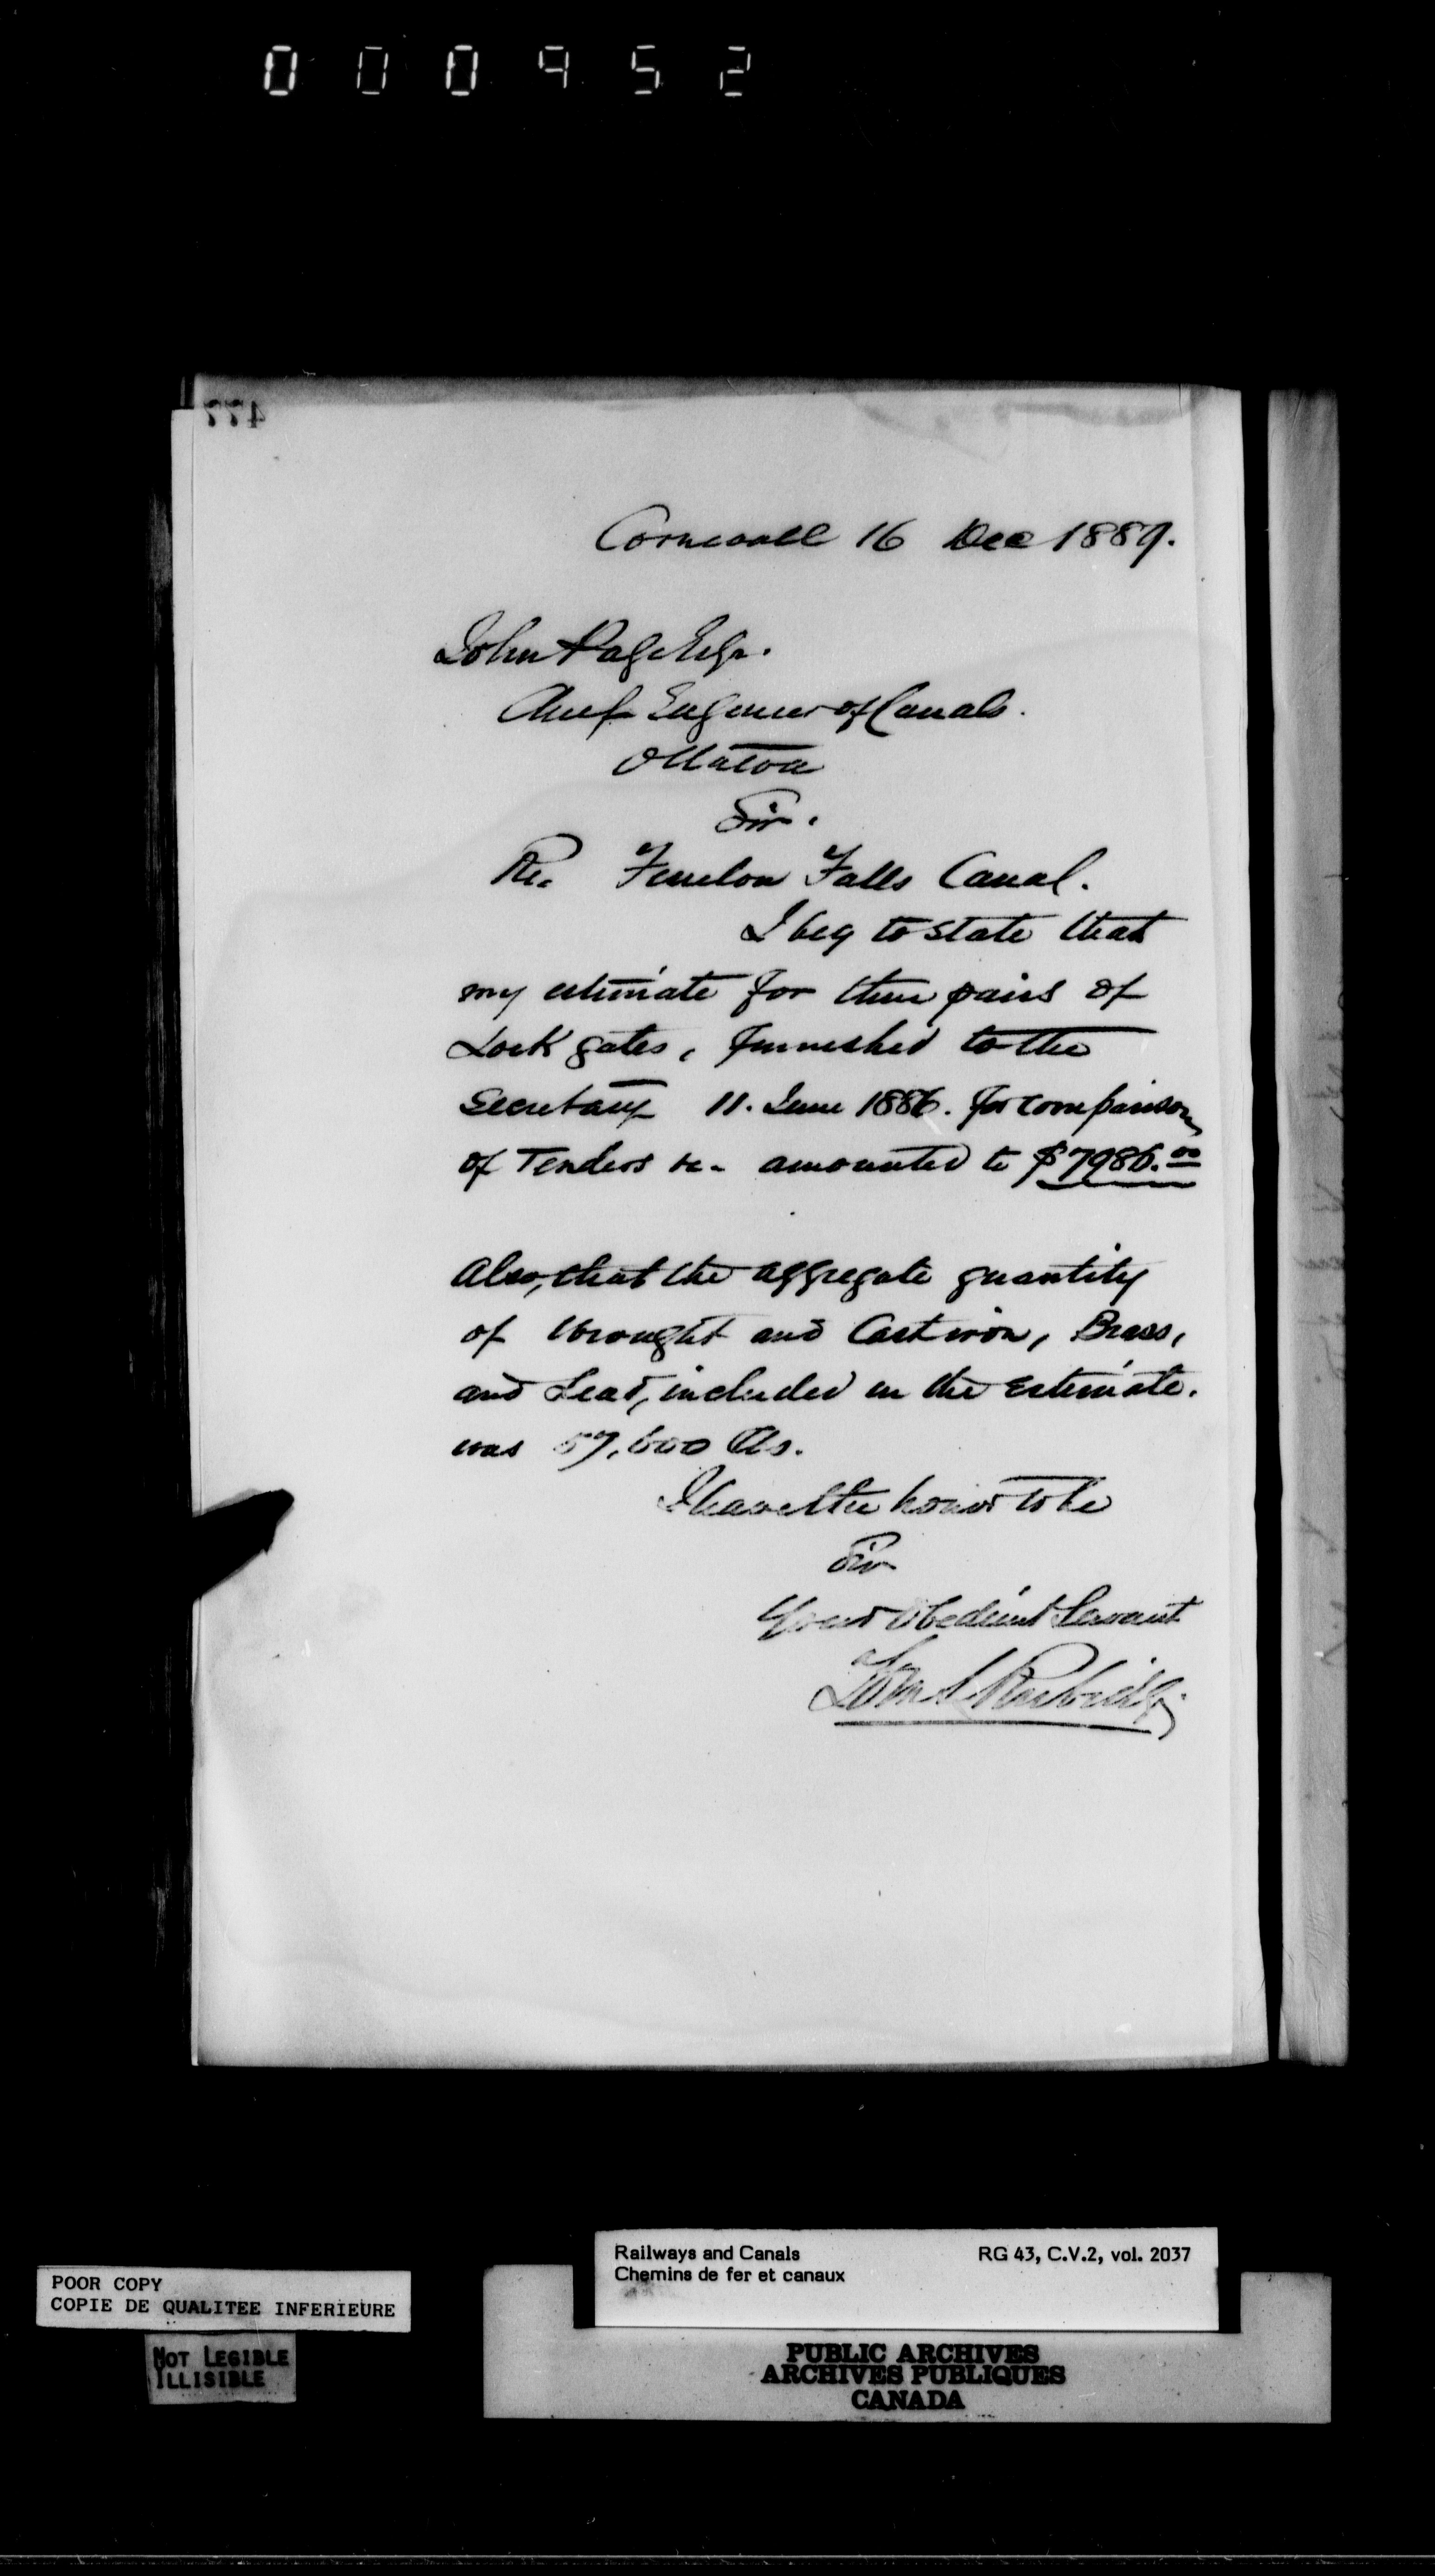 000952
477
Cornwall 16 Dec 1889.
John Page Esqr.
Chief Engineer of Canals.
Ottawa
Sir.
Re. Fenelon Falls Canal.
I beg to state that
my estimate for three pairs of
Lock gates, furnished to the
Secretary 11. June 1886. for comparison
of Tenders &c. amounted to $7986.00
Also, that the aggregate quantity
of Wrought and Cast iron, Brass,
and Lead, included in the Estimate.
was 57,600 lbs.
I have the honor to be
Sir
Your Obedient Servant
Tom S. Rubidge
Railways and Canals RG 43, C.V.2, vol. 2037
Chemins de fer et canaux
POOR COPY
COPIE DE QUALITEE INFERIEURE
NOT LEGIBLE
ILLISIBLE
PUBLIC ARCHIVES
ARCHIVES PUBLIQUES
CANADA